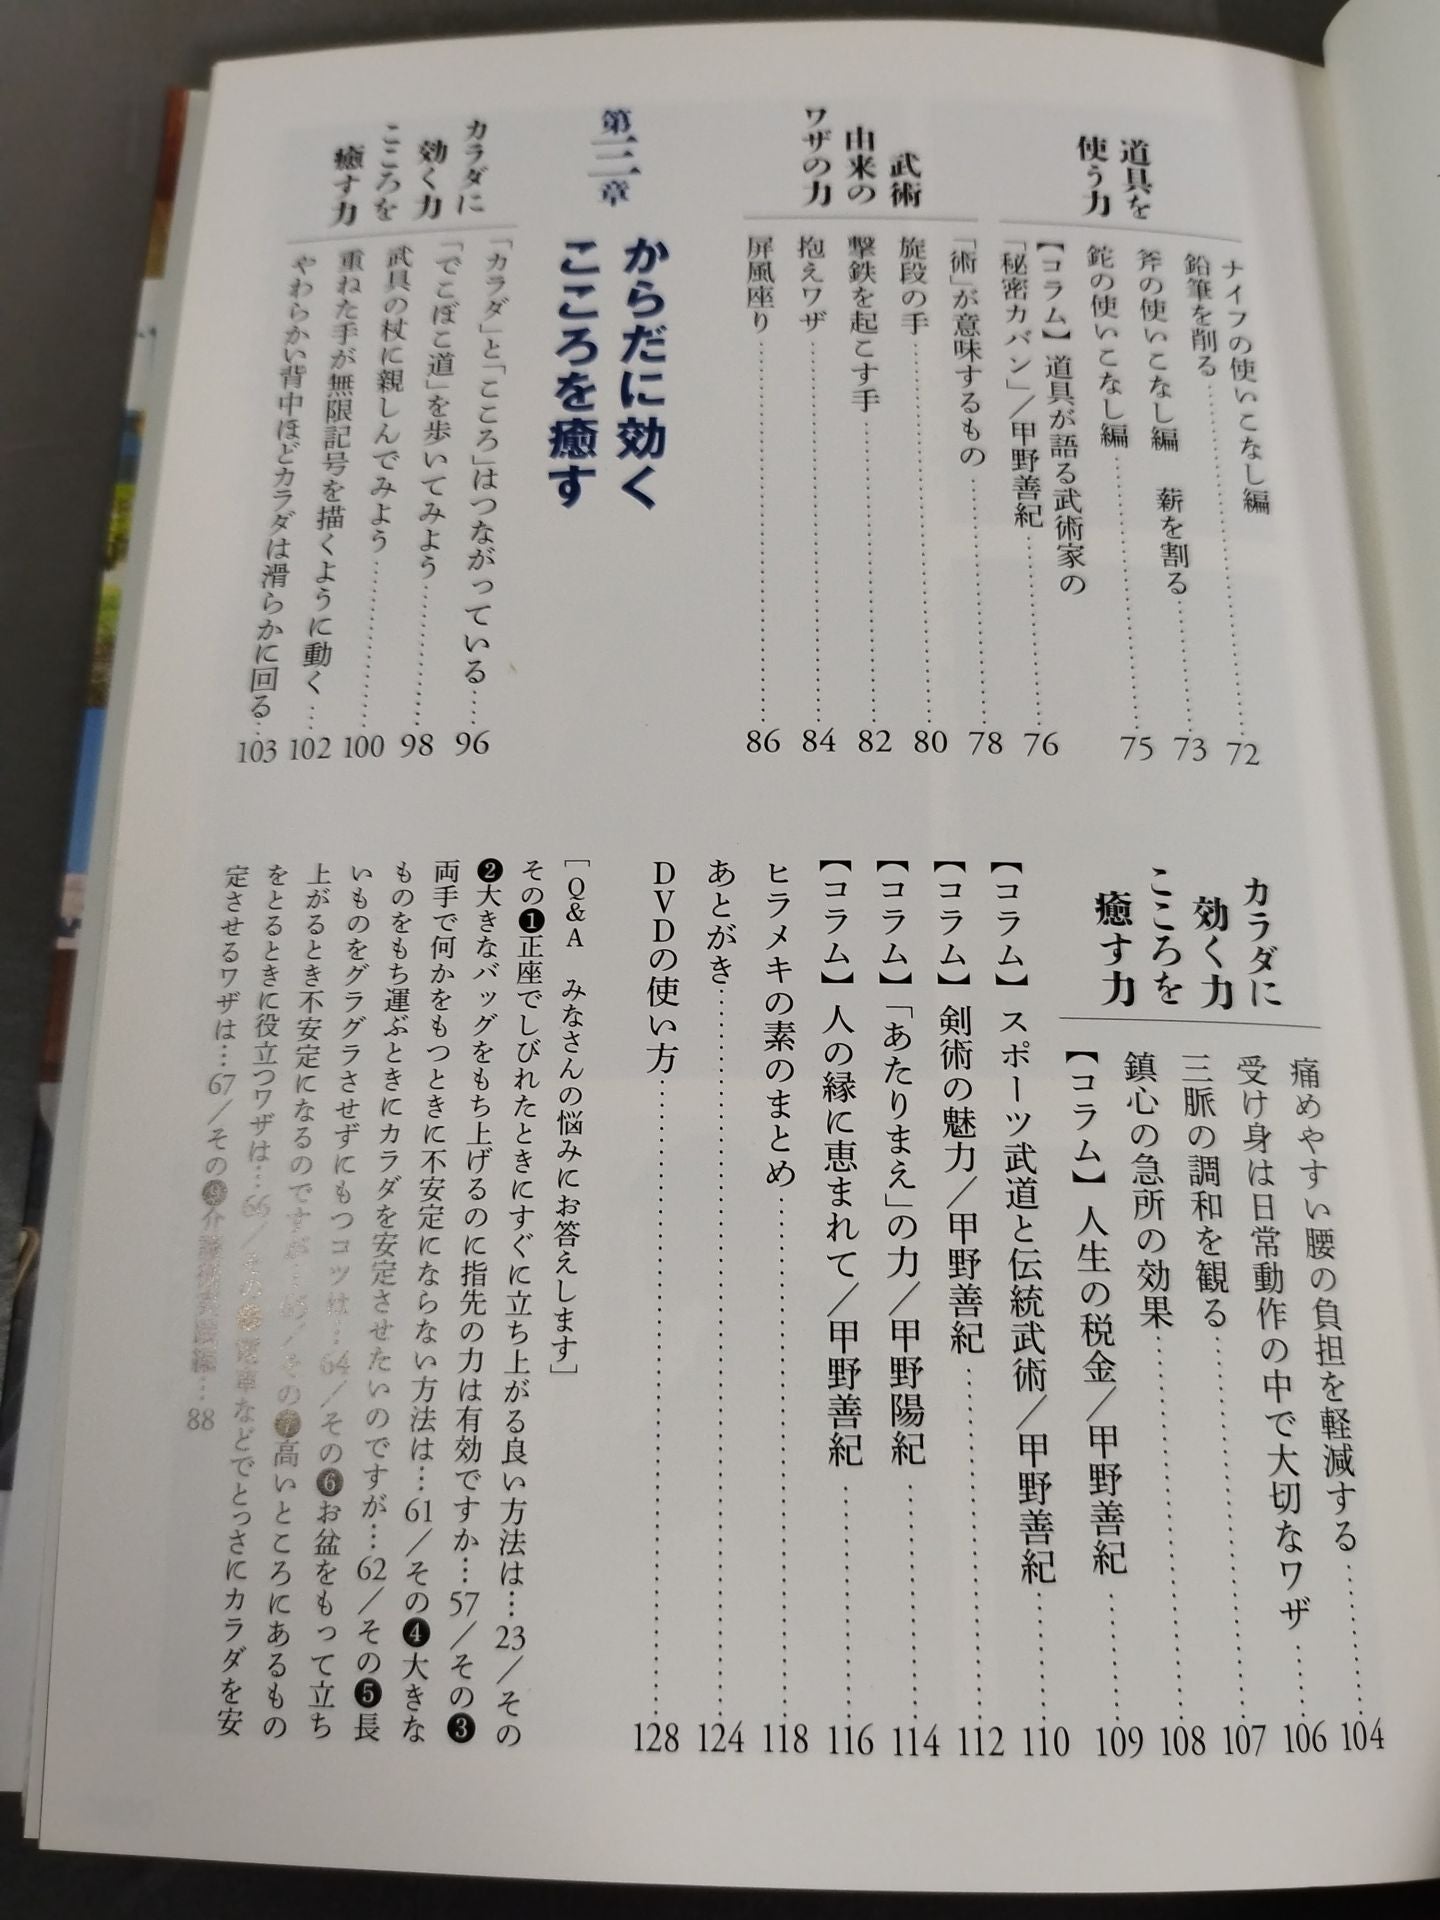 道具を
使う力
ナイフの使いこなし編
鉛筆を削る……72
斧の使いこなし編 薪を割る……73
鉈の使いこなし編……75
【コラム】道具が語る武術家の
「秘密カバン」／甲野善紀……76
武術
由来の
ワザの力
「術」が意味するもの……78
旋段の手……80
撃鉄を起こす手……82
抱えワザ……84
屏風座り……86
第三章
からだに効く
こころを癒す
カラダに
効く力
こころを
癒す力
「カラダ」と「こころ」はつながっている……96
「でこぼこ道」を歩いてみよう……98
武具の杖に親しんでみよう……100
重ねた手が無限記号を描くように動く…102
やわらかい背中ほどカラダは滑らかに回る…103
カラダに
効く力
こころを
癒す力
痛めやすい腰の負担を軽減する……104
受け身は日常動作の中で大切なワザ……106
三脈の調和を観る……107
鎮心の急所の効果……108
【コラム】人生の税金／甲野善紀……109
【コラム】スポーツ武道と伝統武術／甲野善紀……110
【コラム】剣術の魅力／甲野善紀……112
【コラム】「あたりまえ」の力／甲野陽紀……114
【コラム】人の縁に恵まれて／甲野善紀……116
ヒラメキの素のまとめ……118
あとがき……124
DVDの使い方……128
［Q&A みなさんの悩みにお答えします］
その❶正座でしびれたときにすぐに立ち上がる良い方法は…23／その
❷大きなバッグをもち上げるのに指先の力は有効ですか…57／その❸
両手で何かをもつときに不安定にならない方法は…61／その❹大きな
ものをもち運ぶときにカラダを安定させたいのですが…62／その❺長
いものをグラグラさせずにもつコツは…64／その❻お盆をもって立ち
上がるとき不安定になるのですが…65／その❼高いところにあるもの
をとるときに役立つワザは…66／その❽電車などでとっさにカラダを安
定させるワザは…67／その❾介護術実践編…88